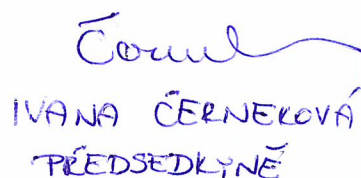 IVANA ČERNEKOVÁ
PŘEDSEDKYNĚ